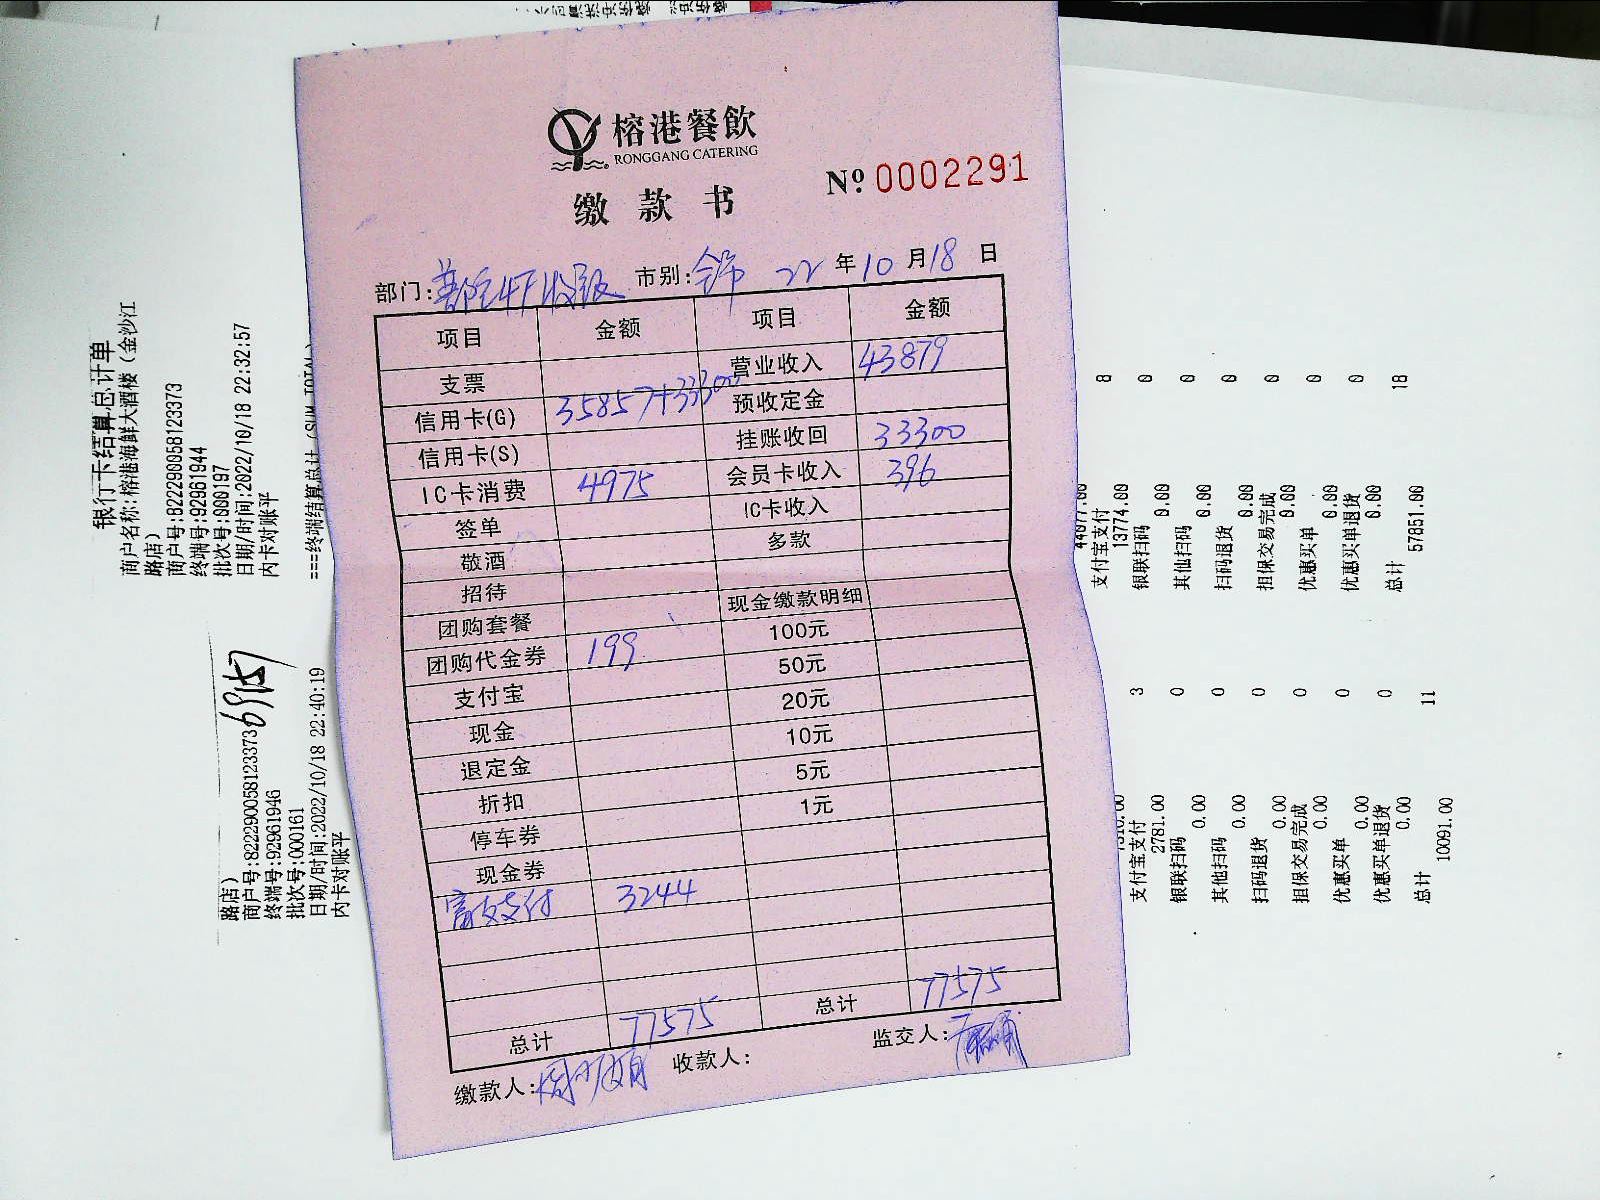 榕港餐飲
RONGGANG CATERING
缴款书
№ 0002291
部门: 4F收银 市别:全市 22年10月18日
项目 金额 项目 金额
支票 营业收入 43879
信用卡(G) 35857+33300 预收定金
信用卡(S) 挂账收回 33300
IC卡消费 4975 会员卡收入 396
签单 IC卡收入
敬酒 多款
招待
团购套餐 现金缴款明细
团购代金券 199 100元
支付宝 50元
现金 20元
退定金 10元
折扣 5元
停车券 1元
现金券
富友支付 3244
总计 77575 总计 77575
缴款人: 收款人: 监交人:
银行卡结算总计单
商户名称:榕港海鲜大酒楼(金沙江
路店)
商户号:822290058123373
终端号:92961944
批次号:000197
日期/时间:2022/10/18 22:32:57
内卡对账平
===终端结算总计(SUM TOTAL)
8 44077.00
支付宝支付
0 13774.00
银联扫码
0 0.00
其他扫码
0 0.00
扫码退货
0 0.00
担保交易完成
0 0.00
优惠买单
0 0.00
优惠买单退货
0.00
总计
18 57851.00
69157
路店)
商户号:822290058123373
终端号:92961946
批次号:000161
日期/时间:2022/10/18 22:40:19
内卡对账平
7310.00
支付宝支付
3 2781.00
银联扫码
0 0.00
其他扫码
0 0.00
扫码退货
0 0.00
担保交易完成
0 0.00
优惠买单
0 0.00
优惠买单退货
0 0.00
总计
11 10091.00